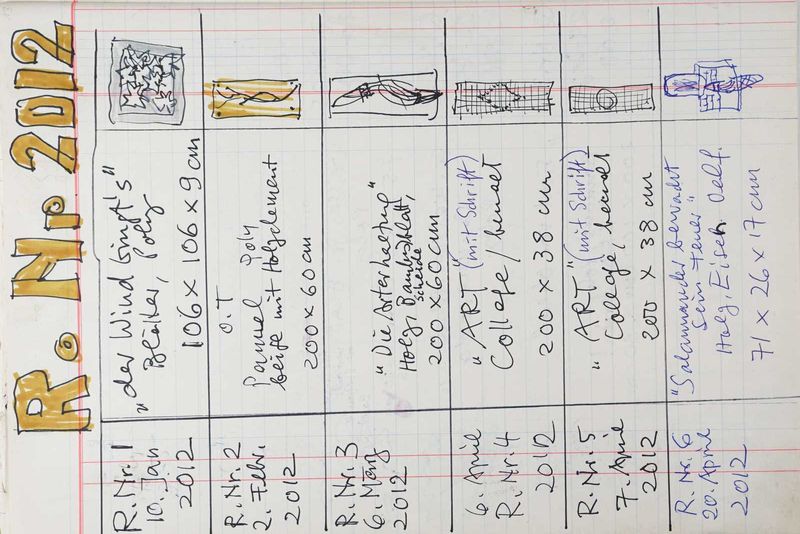 R. Nr 2012
R. Nr. 1
10. Jan
2012
"der Wind singt's"
Blätter, Poly
106 x 106 x 9 cm
R. Nr. 2
2. Febr.
2012
O.T
Panneel Poly
beige mit Holzelement
200 x 60 cm
R. Nr. 3
6. März
2012
"Die Arterhaltung"
Holz, Bambusblatt,
scheide
200 x 60 cm
6. April
R. Nr. 4
2012
"ART" (mit Schrift)
College / bemalt
200 x 38 cm
R. Nr. 5
7. April
2012
"ART" (mit Schrift)
College, bemalt
200 x 38 cm
R. Nr. 6
20. April
2012
"Salamander bewacht
sein Feuer"
Holz, Eisen
71 x 26 x 17 cm